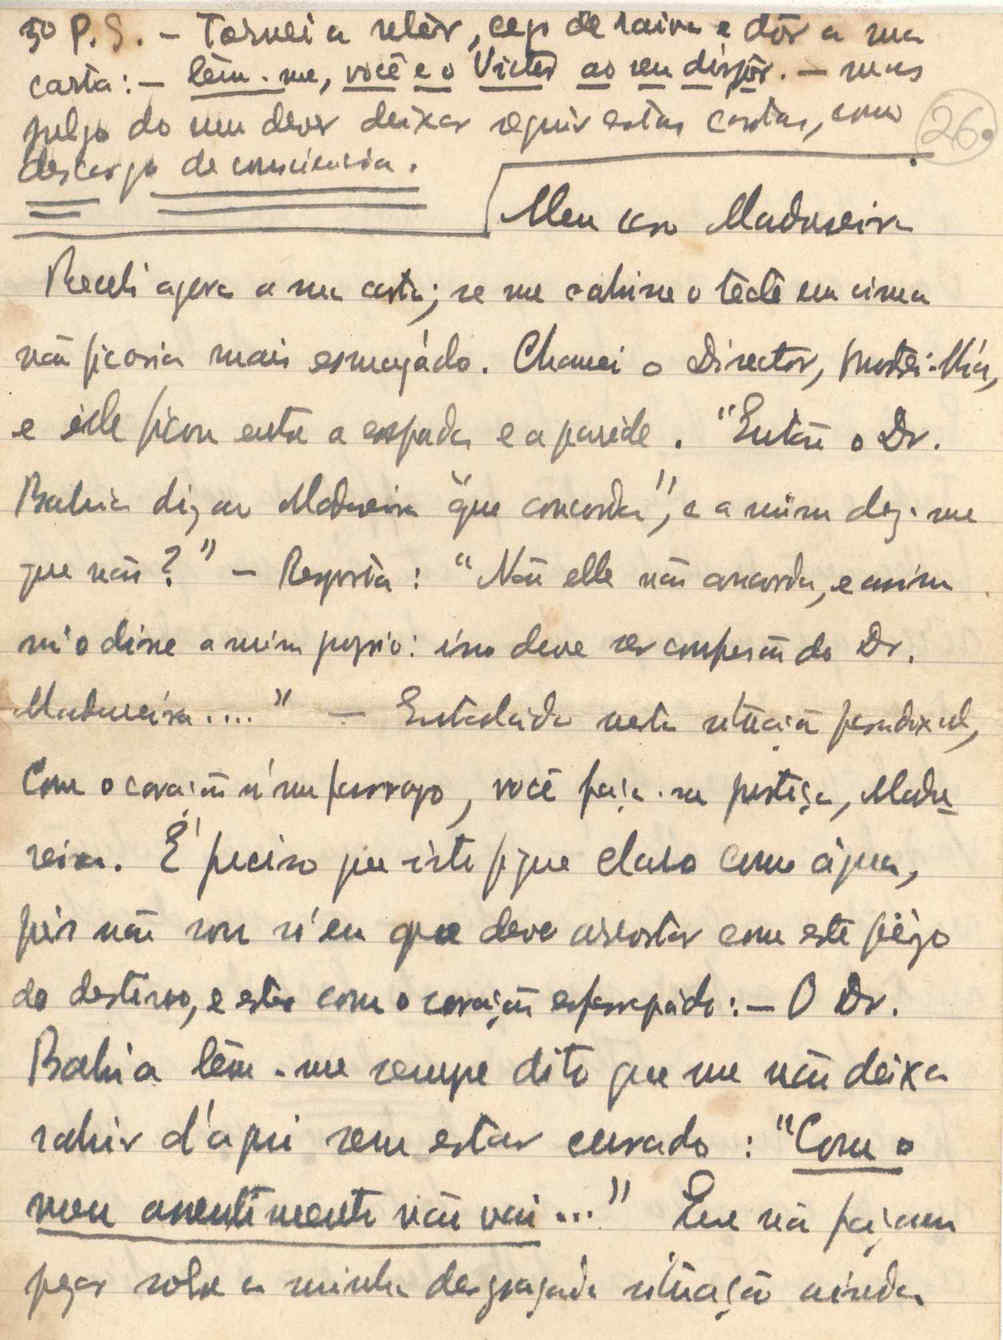 3º P.S. - Tornei a relêr, cego de raiva e dôr a sua
carta: - têm-me, você e o Victor ao seu dispôr. - mas
julgo do meu dever deixar seguir estas cartas, como
26.
descargo de consciencia.
Meu caro Madureira
Recebi agora a sua carta; se me cahisse o této em cima
não ficaria mais esmagádo. Chamei o Director, mostrei-lh'a,
e êlle ficou entre a espada e a paréde. "Então o Dr.
Bahia diz ao Madureira "que concorda", e a mim diz-me
que não?" - Resposta: "Não elle não concorda, e assim
m'o disse a mim proprio: isso deve ser confusão do Dr.
Madureira...." - Entaládo nesta situação paradoxal,
Com o coração n'um farrapo, você faça-me justiça, Madu-
reira. É preciso que isto fique claro como água,
pois não sou só eu que devo arrostar com este
do destino, e estar com o coração esfarrapádo: - O Dr.
Bahia têm-me sempre dito que me não deixa
sahir d'aqui sem estar curado: "Com o
meu assentimento não vai..." Que não façam
pezar sobre a minha desgraçada situação ainda